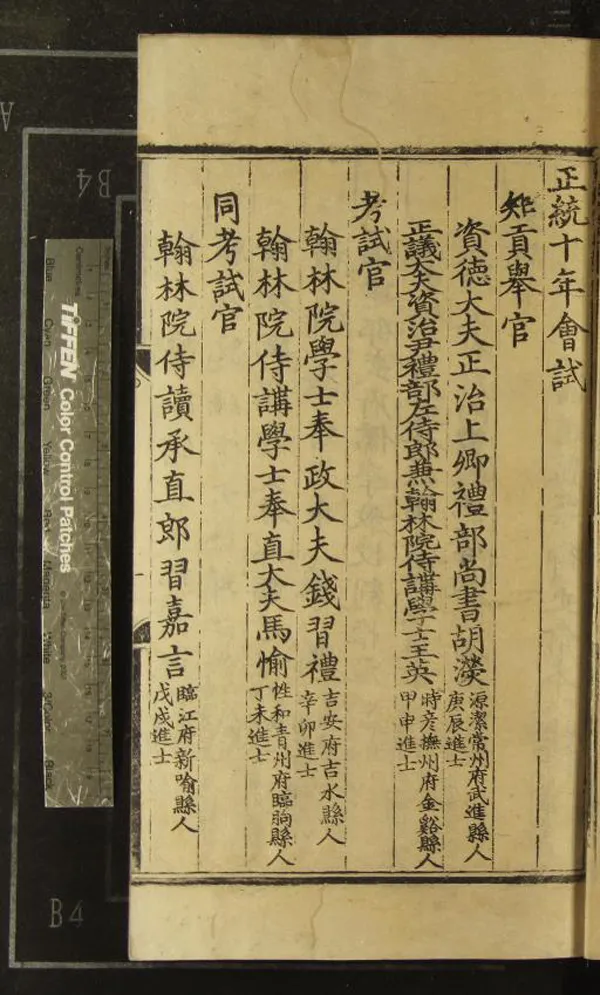 正統十年會試
知貢舉官
資德大夫正治上卿禮部尚書胡濙 源潔常州府武進縣人
庚辰進士
正議大夫資治尹禮部左侍郎兼翰林院侍講學士王英 時彦撫州府金谿縣人
甲申進士
考試官
翰林院學士奉政大夫錢習禮 吉安府吉水縣人
辛卯進士
翰林院侍講學士奉直大夫馬愉 性和青州府臨朐縣人
丁未進士
同考試官
翰林院侍讀承直郎習嘉言 臨江府新喻縣人
戊戌進士
TIFFEN Color Control Patches
Blue
Cyan
Green
Yellow
Red
Magenta
White
3/Color
Black
B4
B4
A